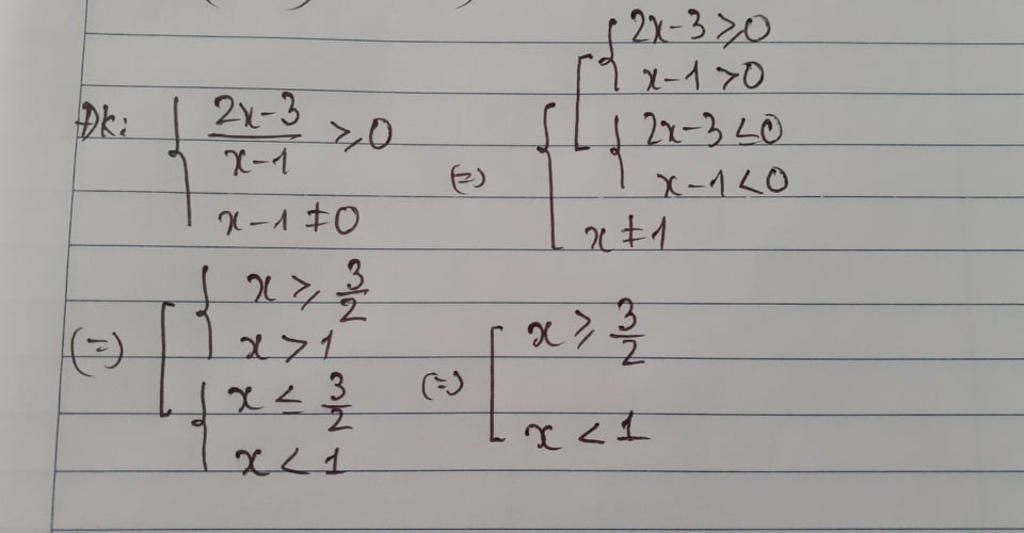 Đk: { (2x-3)/(x-1) ⩾ 0
x-1 ≠ 0
(=) { [ { 2x-3 ⩾ 0
x-1 > 0
{ 2x-3 ≤ 0
x-1 < 0
x ≠ 1
(=) [ { x ⩾ 3/2
x > 1
{ x ≤ 3/2
x < 1
(=) [ x ⩾ 3/2
x < 1